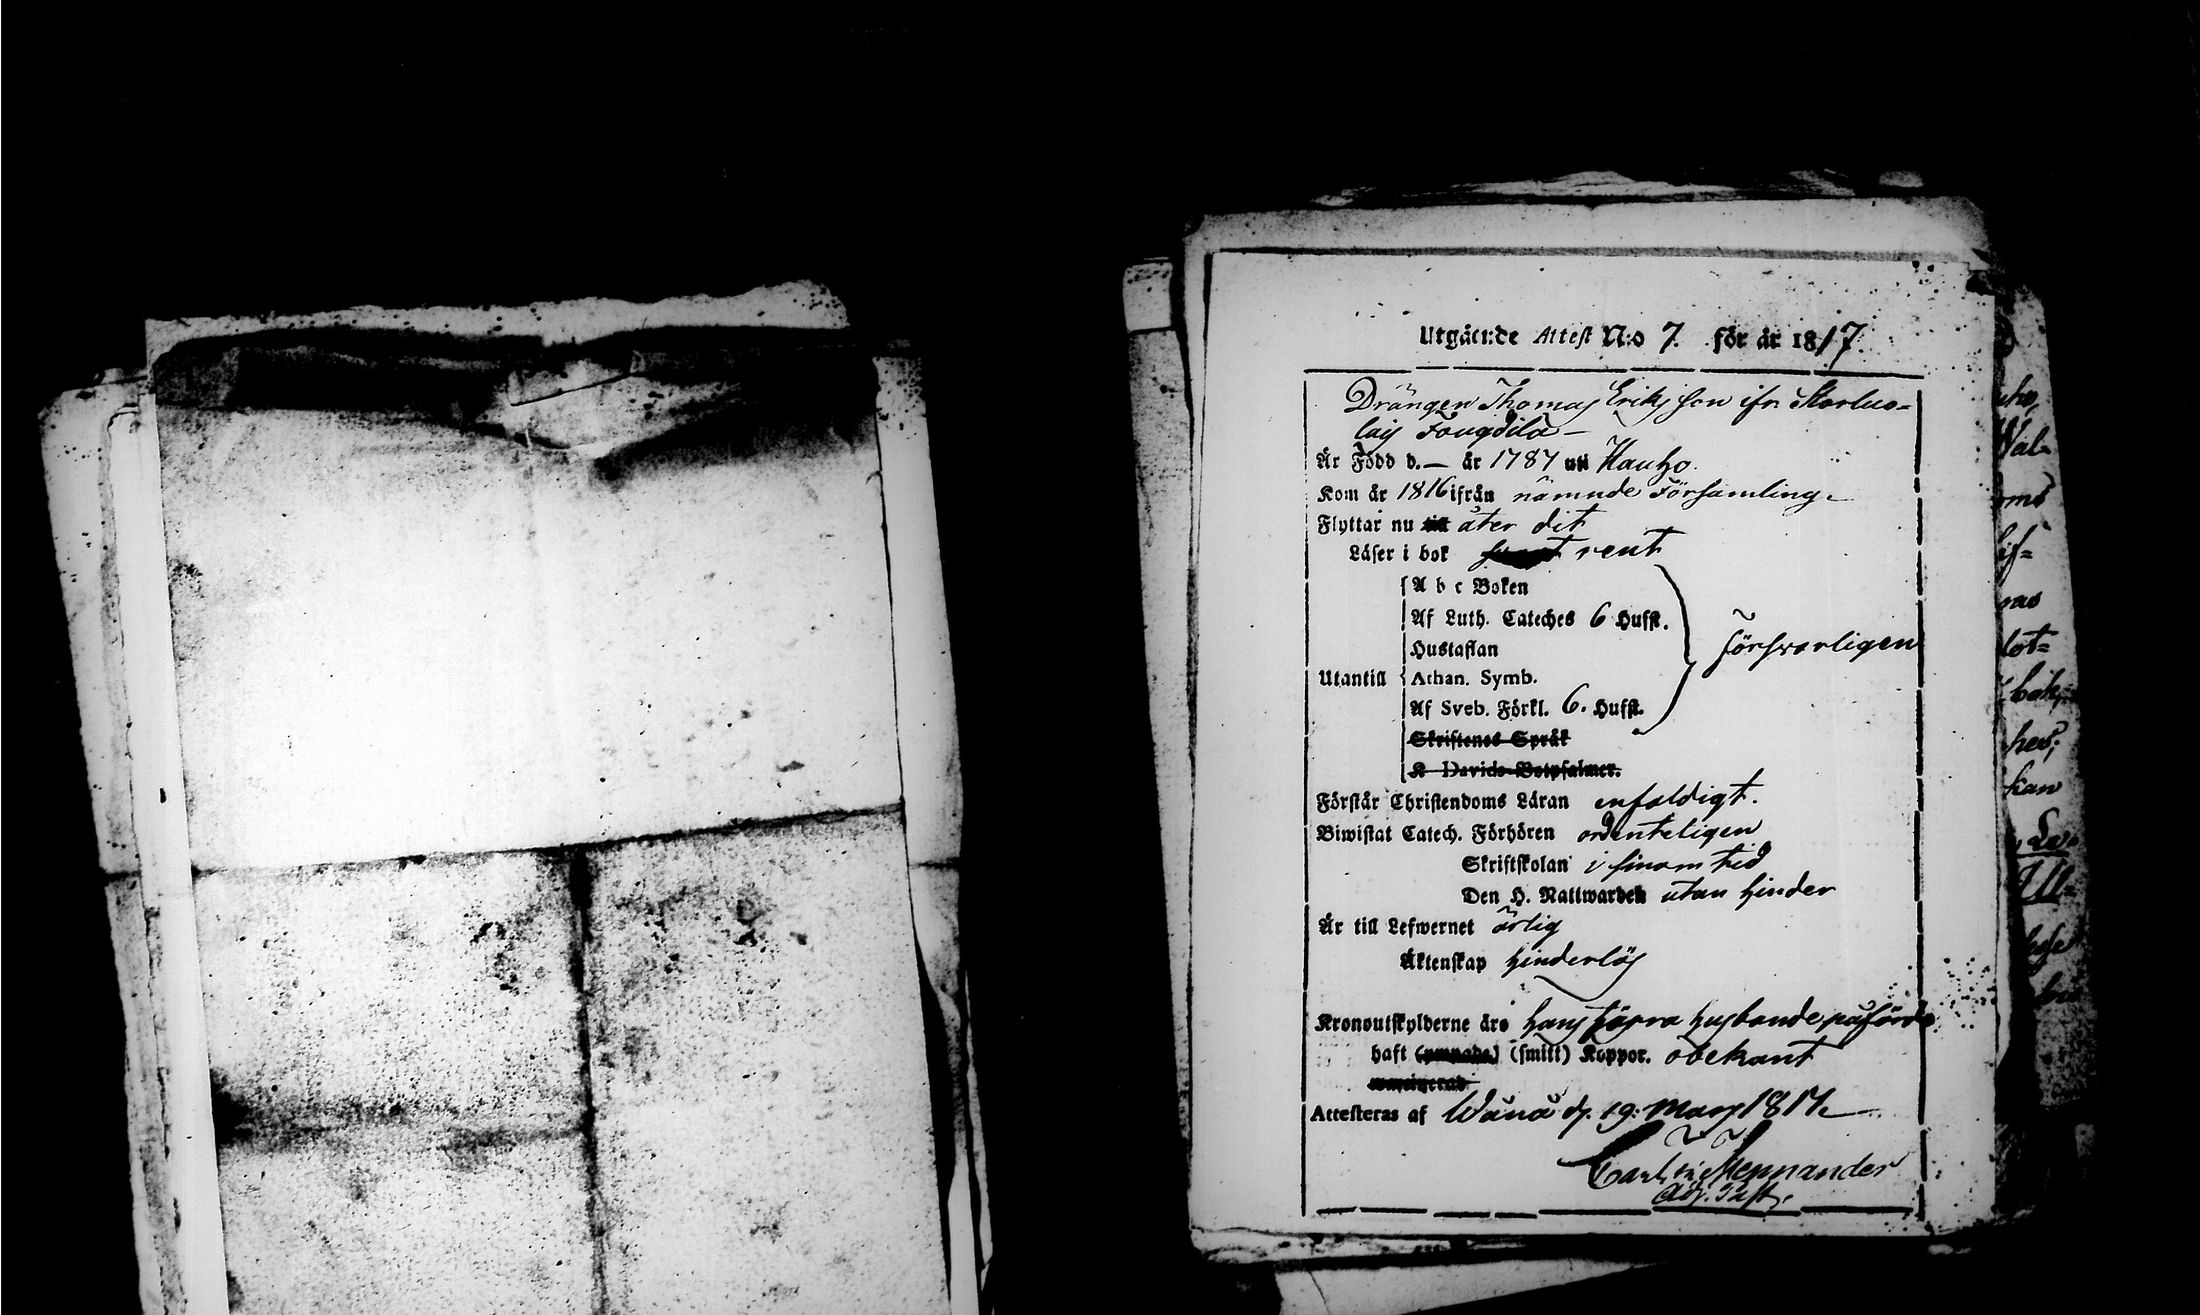 Utgående Attest N:o 7. för år 1817.
Drängen Thomas Eriksson ifr
Är Född d. — år 1787 uti Hauho.
Kom år 1816 ifrån nämnde Församling.
Flyttar nu till åter dit
Läser i bok rent
A b c Boken
Af Luth. Cateches 6 Hufst.
Hustaflan
försvarligen
Utantill
Athan. Symb.
Af Sveb. Förkl. 6. Hufst.
Skriftenes Språk
K Davids Botpsalmer.
Förstår Christendoms Läran enfaldigt.
Biwistat Catech. Förhören ordenteligen
Skriftskolan i sinom tid
Den H. Nattwarden utan hinder
Är till Lefwernet ärlig
Äktenskap hinderlös
Kronoutskylderne äro hans förra husbonde påförde
haft (smitt) Koppor. obekant
vaccinerad
Attesteras af Wånå d. 19: Mars 1817.
Carl Mennander
Adj. Past.
kan